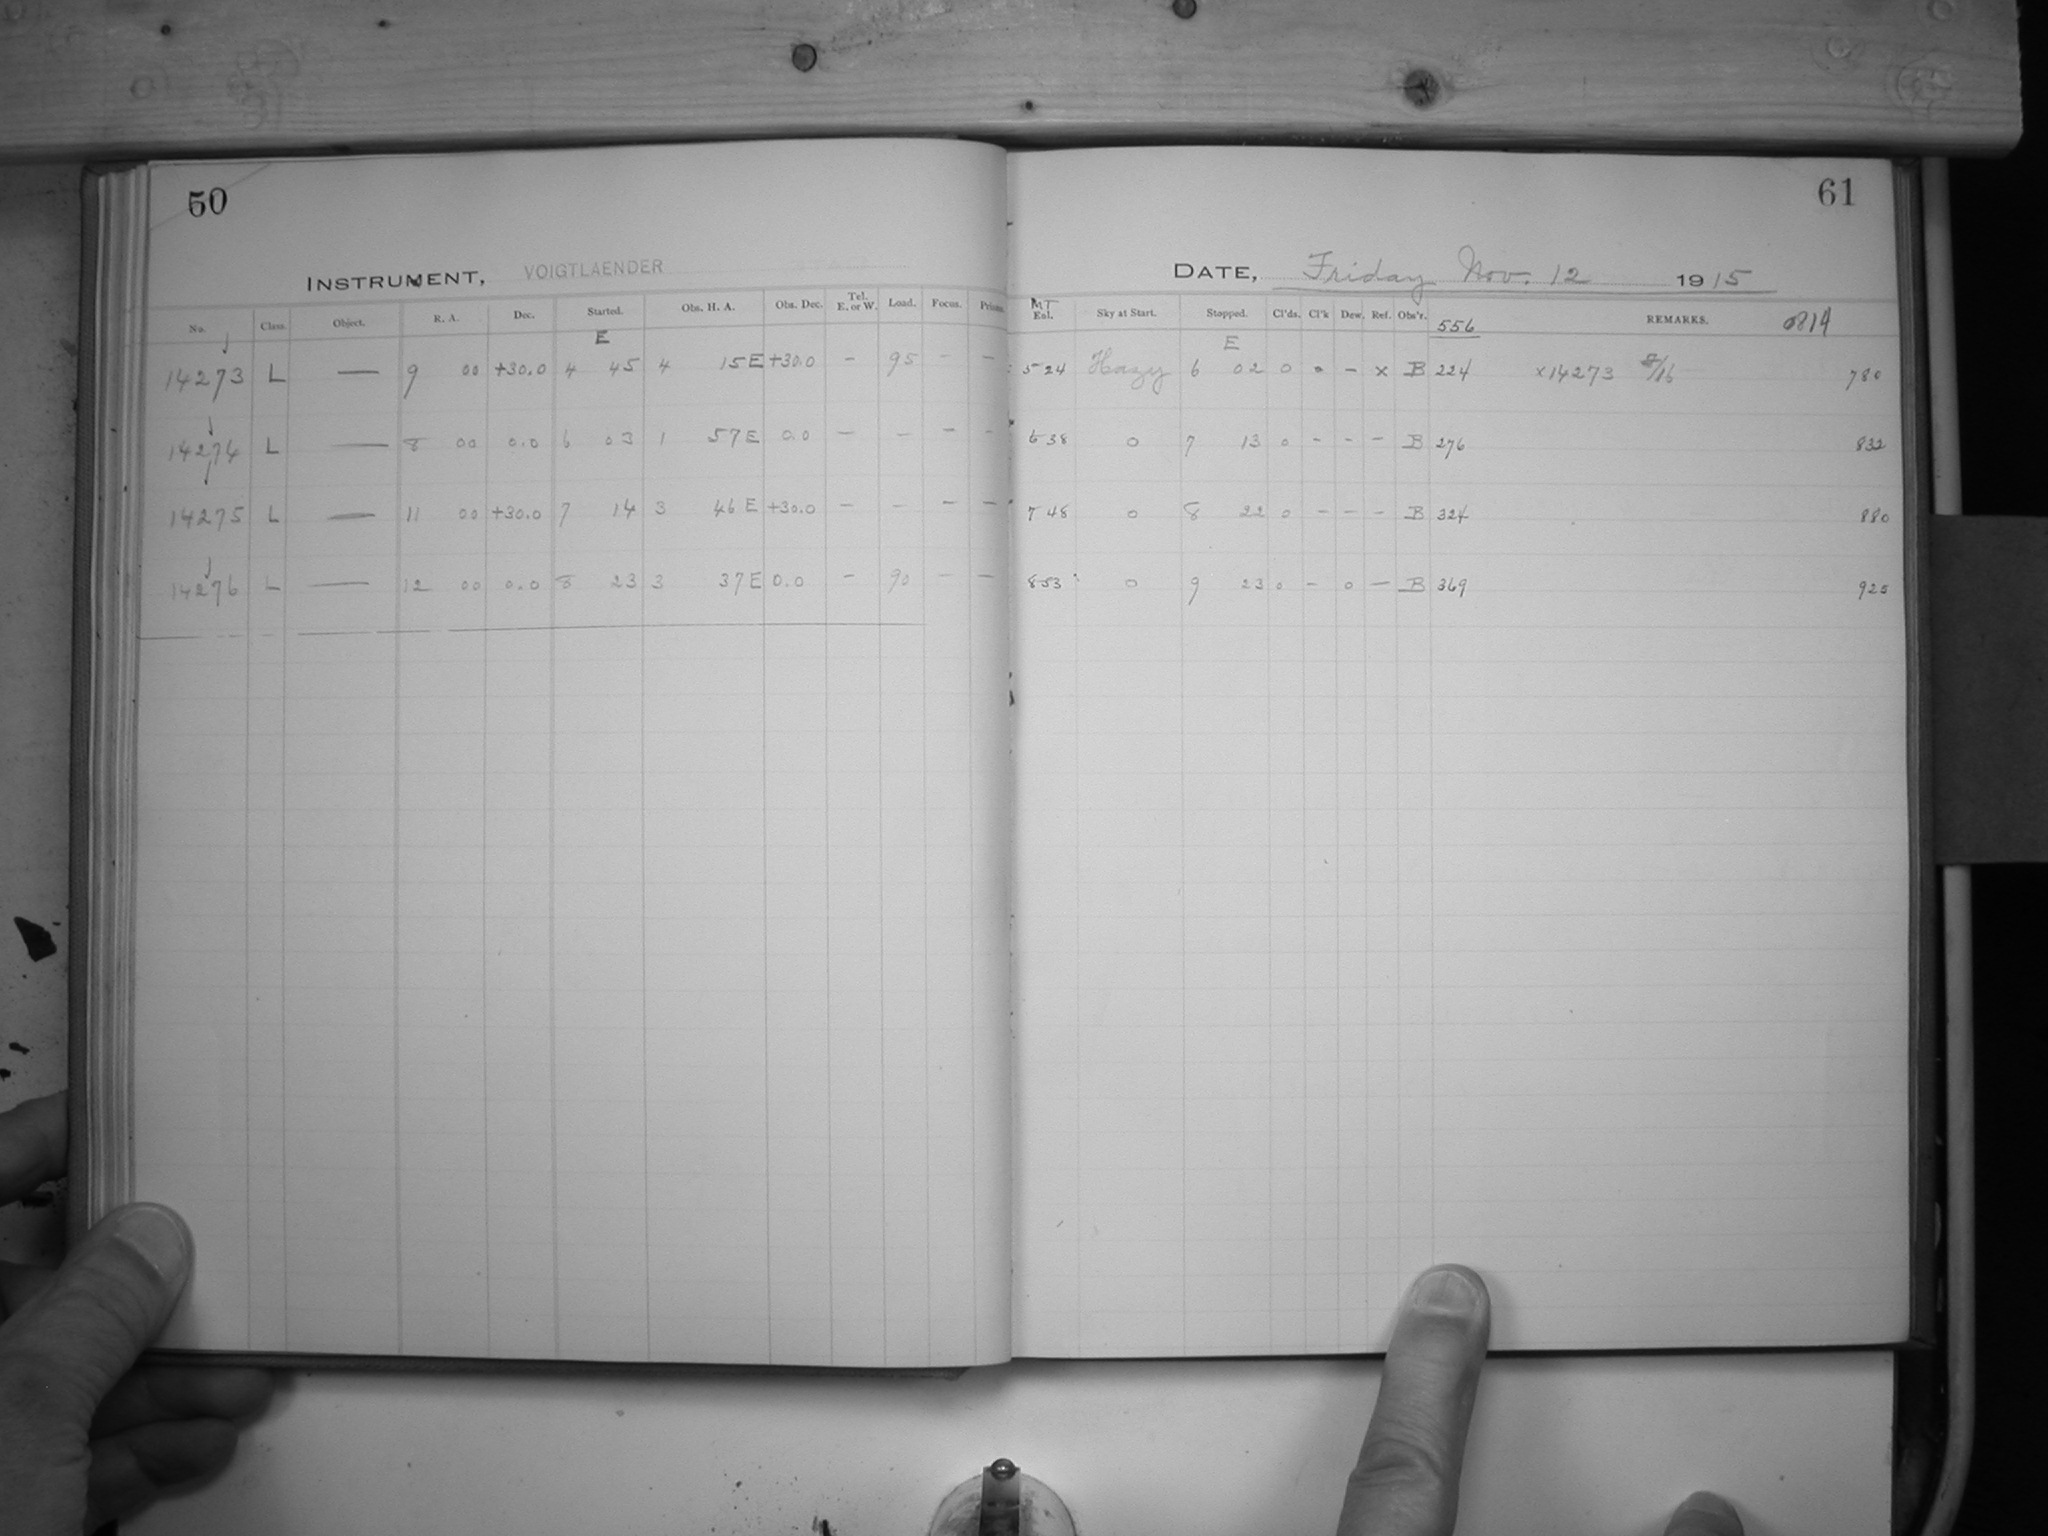 50
INSTRUMENT, VOIGTLAENDER
No. Class. Object. R. A. Dec. Started. Obs. H. A. Obs. Dec. Tel. E. or W. Load. Focus.
E
14273 L — 9 00 +30.0 4 45 4 15 E +30.0 — 95 — —
14274 L — 8 00 0.0 6 03 1 57 E 0.0 — — — —
14275 L — 11 00 +30.0 7 14 3 46 E +30.0 — — — —
14276 L — 12 00 0.0 8 23 3 37 E 0.0 — 90 — —
61
DATE, Friday Nov. 12 1915
MT
Eol. Sky at Start. Stopped. Cl'ds. Cl'k Dew. Ref. Obs'r. 556 REMARKS. 0814
E
5 24 Hazy 6 02 0 0 — x B 224 x14273 780
6 38 0 7 13 0 — — — B 276 832
7 48 0 8 22 0 — — — B 324 880
8 53 0 9 23 0 — 0 — B 369 925